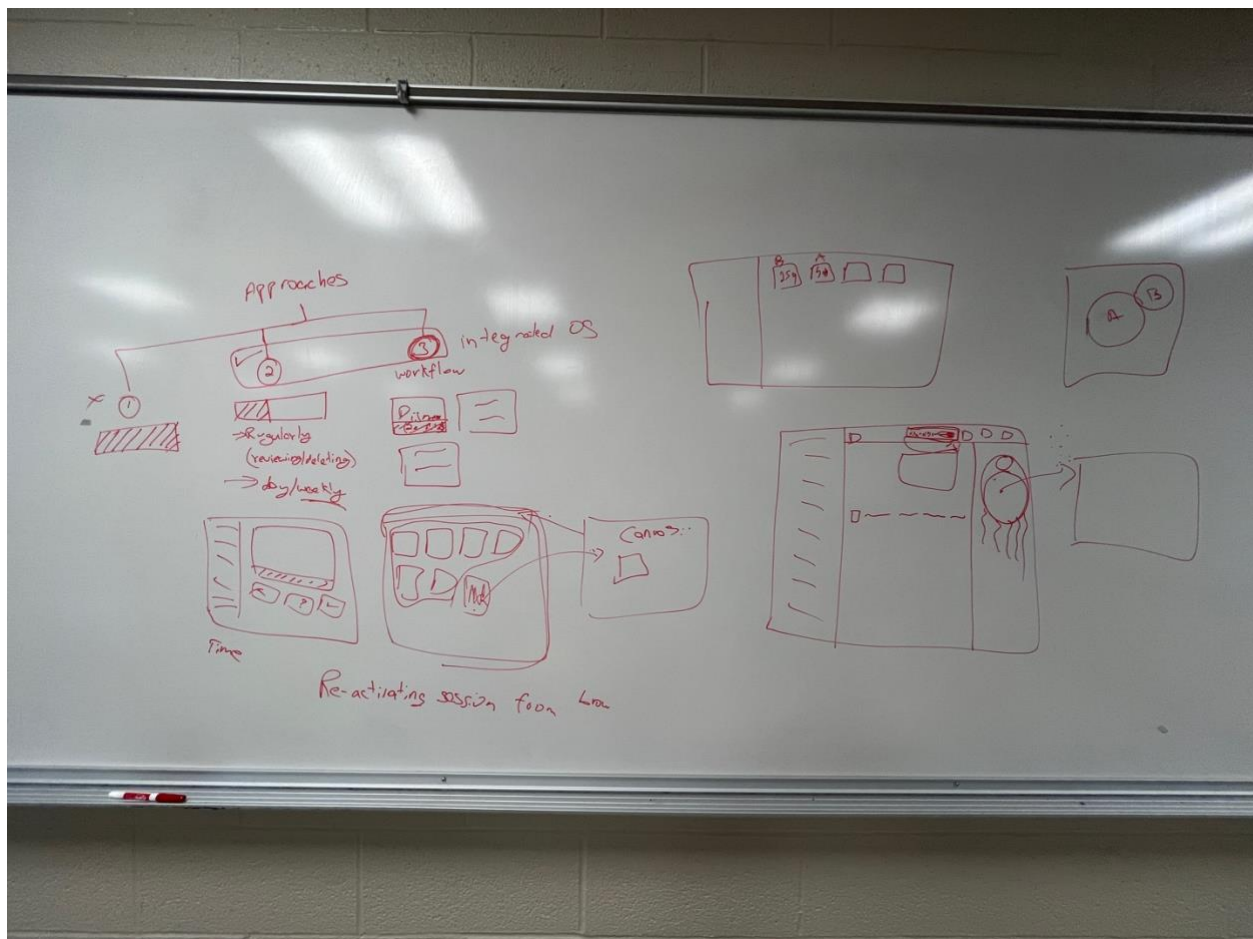 Approaches
integrated OS
3
2
workflow
x 1
→ Regularly
(reviewing/deleting)
→ day/weekly
Time
Canvas..
Re-activating session from
B A
A
B